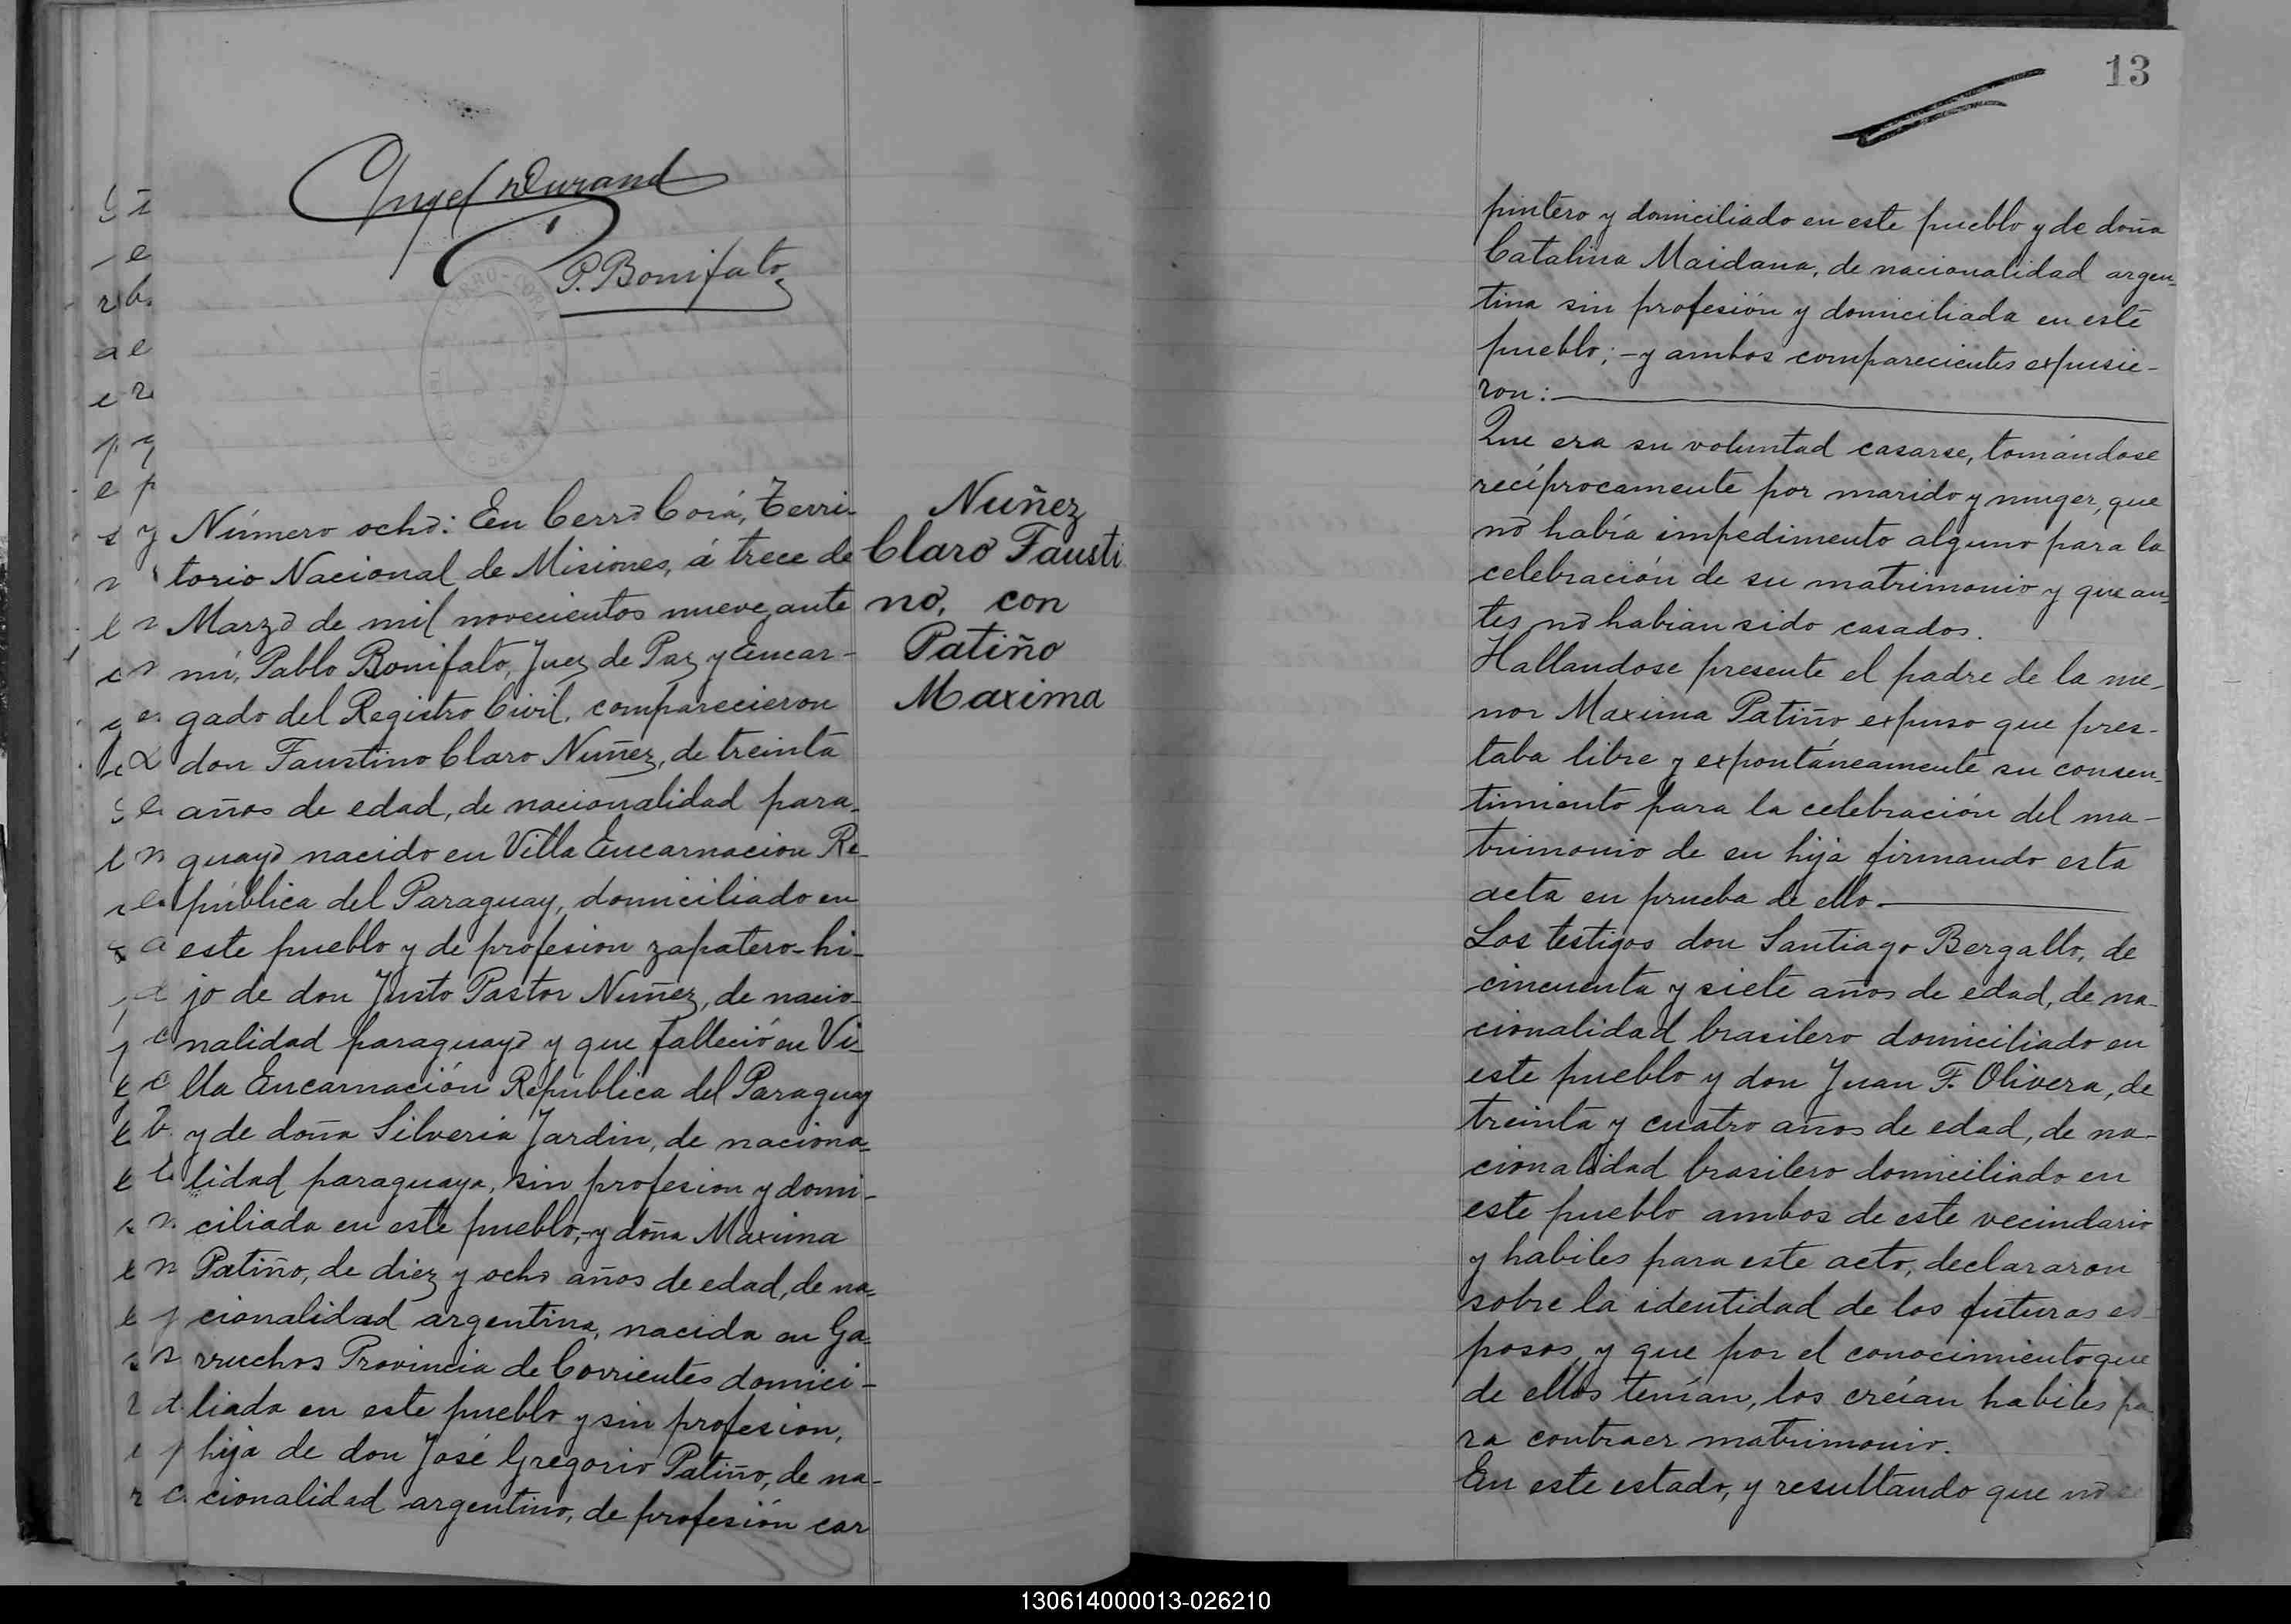 Angel Durand
P. Bonifato
Número ocho: En Cerro Corá, Terri-
torio Nacional de Misiones, á trece de
Marzo de mil novecientos nueve, ante
mi, Pablo Bonifato, Juez de Paz y Encar-
gado del Registro Civil, comparecieron
don Faustino Claro Nuñez, de treinta
años de edad, de nacionalidad para-
guayo nacido en Villa Encarnacion Re-
pública del Paraguay, domiciliado en
este pueblo y de profesion zapatero-hi-
jo de don Justo Pastor Nuñez, de nacio-
nalidad paraguayo y que falleció en Vi-
lla Encarnación República del Paraguay
y de doña Silveria Jardin, de naciona-
lidad paraguaya, sin profesion y domi-
ciliada en este pueblo;-y doña Maxima
Patiño, de diez y ocho años de edad, de na-
cionalidad argentina, nacida en Ga-
rruchos Provincia de Corrientes domici-
liada en este pueblo y sin profesion,
hija de don José Gregorio Patiño, de na-
cionalidad argentino, de profesión car
Nuñez
Claro Fausti
no, con
Patiño
Maxima
13
pintero y domiciliado en este pueblo y de doña
Catalina Maidana, de nacionalidad argen-
tina sin profesión y domiciliada en este
pueblo;-y ambos comparecientes expusie-
ron:
Que era su voluntad casarse, tomándose
recíprocamente por marido y muger, que
no había impedimento alguno para la
celebración de su matrimonio y que an-
tes no habian sido casados.
Hallandose presente el padre de la me-
nor Maxima Patiño expuso que pres-
taba libre y expontáneamente su consen-
timiento para la celebración del ma-
trimonio de su hija firmando esta
acta en prueba de ello.
Los testigos don Santiago Bergallo, de
cincuenta y siete años de edad, de na-
cionalidad brasilero domiciliado en
este pueblo y don Juan F. Olivera, de
treinta y cuatro años de edad, de na-
cionalidad brasilero domiciliado en
este pueblo ambos de este vecindario
y habiles para este acto, declararon
sobre la identidad de los futuros es
posos, y que por el conocimiento que
de ellos tenían, los creían habiles pa
ra contraer matrimonio.
En este estado, y resultando que no
130614000013-026210